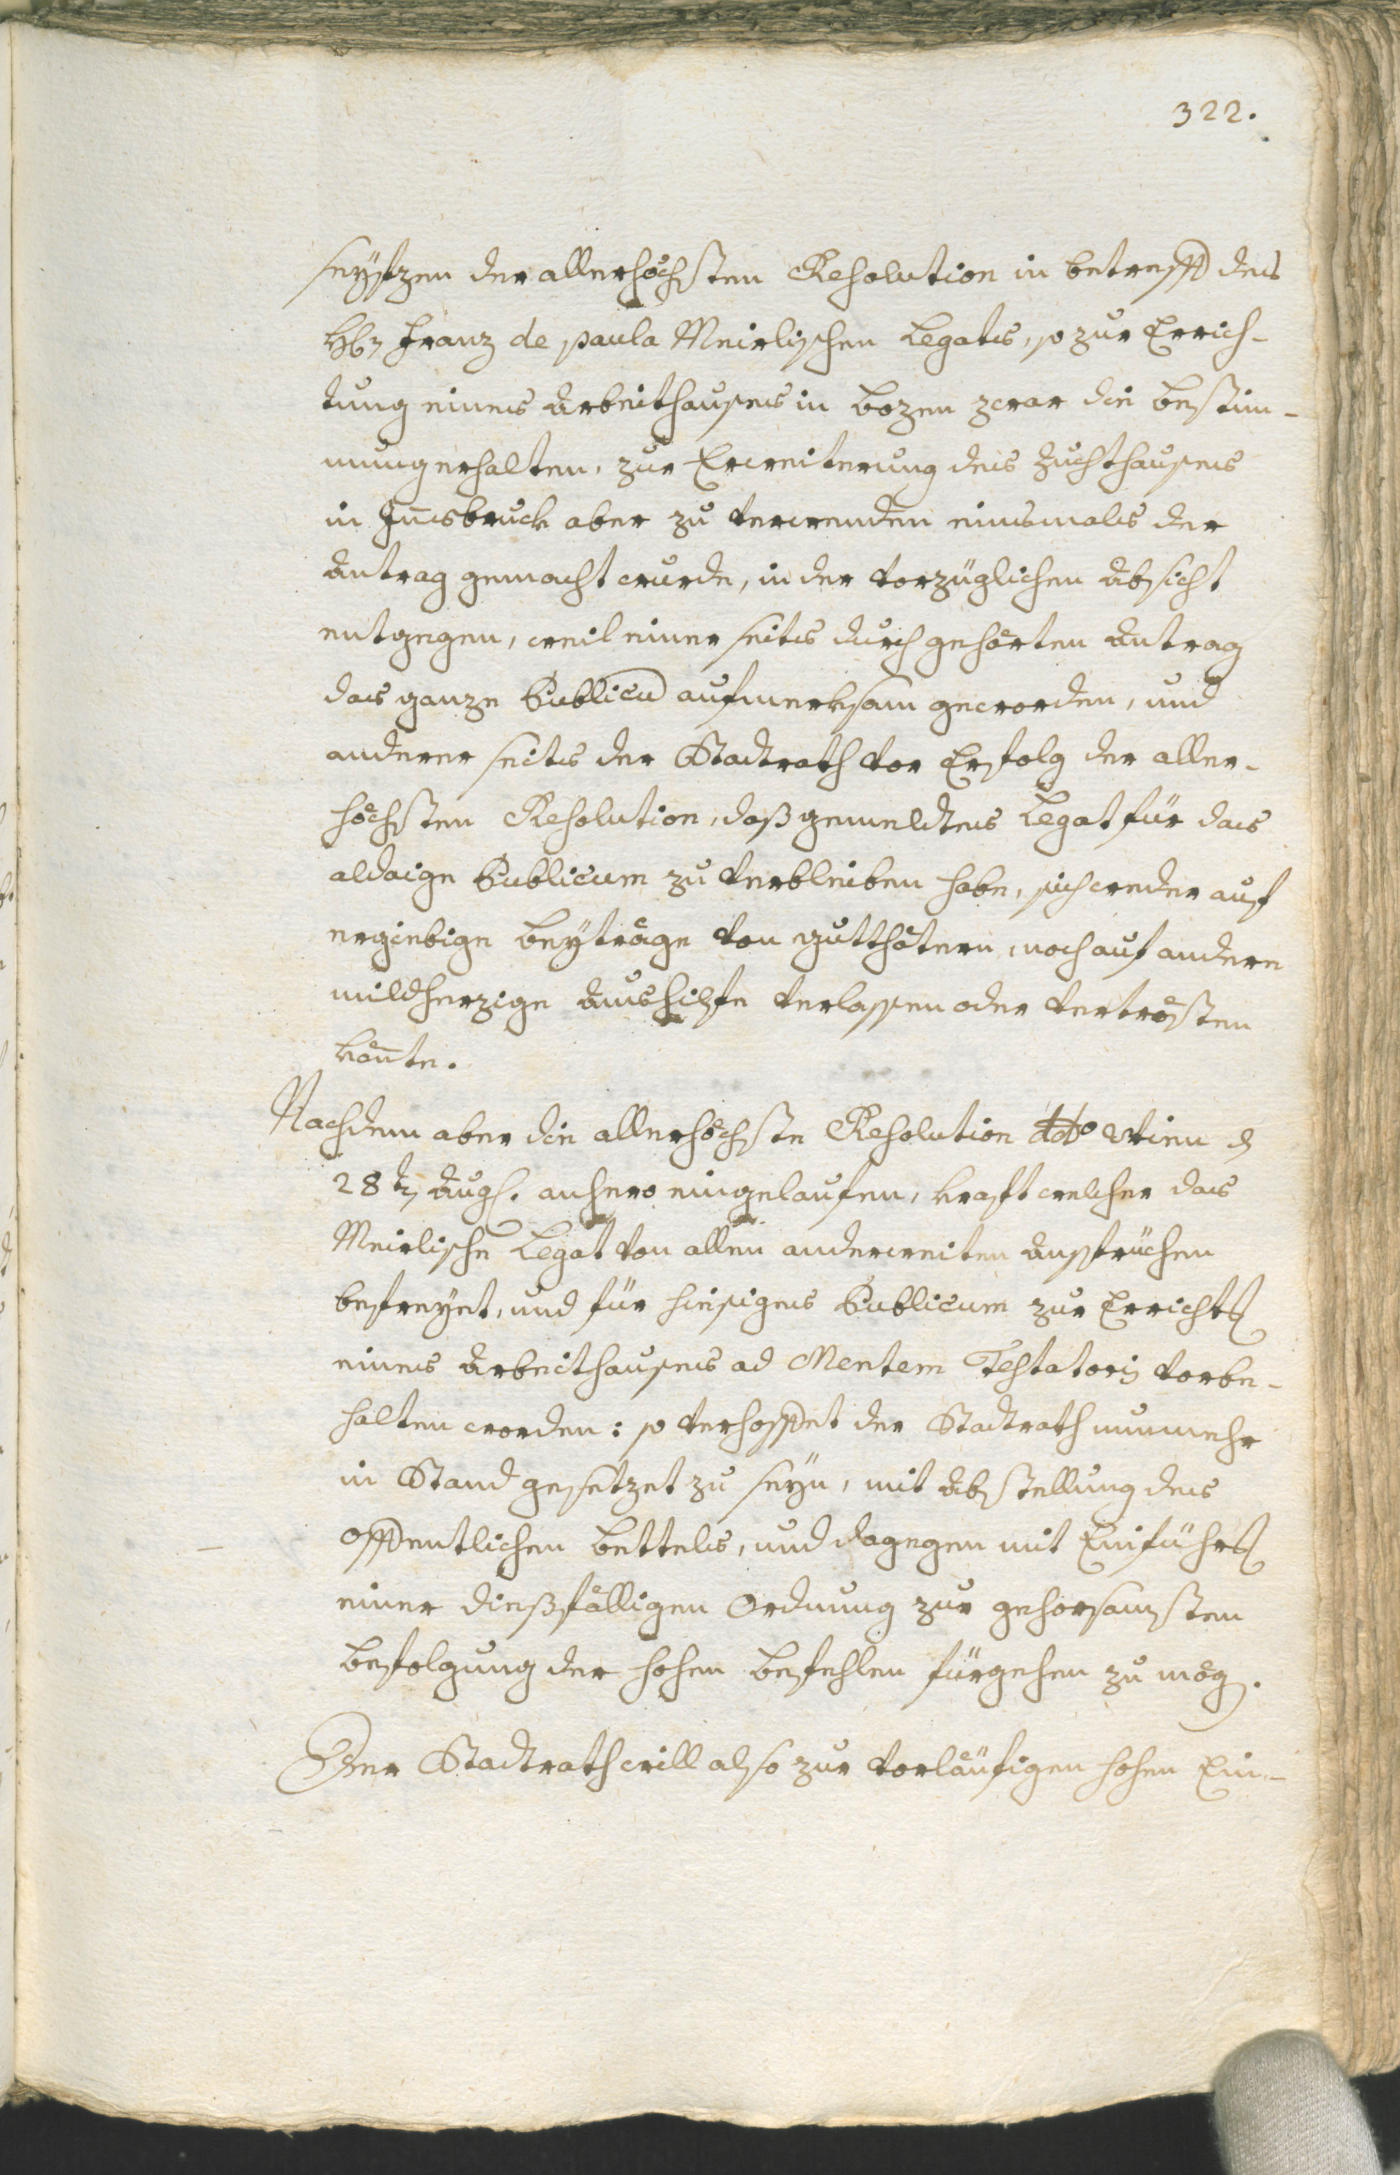 322.
seyszen der allerhöchsten Resolution in betreff des
Franz de paula Meirlischen Legats, so zur Errich-
tung eines Arbeithauses in bozen zwar die bestim-
mung erhalten, zur Erweiterung des Zuchthauses
in Jnnsbruck aber zu verwenden einsmals der
Antrag gemacht wurde, in der vorzüglichen Absicht
entgegen, weil einer seits durch gehörten Antrag
das ganze Publicu aufmerksam geworden, und
anderer seits der Stadtrath vor Erfolg der aller-
höchsten Resolution, daß gemeldtes Legat für das
aldaige Publicum zu verbleiben habe, sich weder auf
ergiebige beyträge von gutthätern, noch auf andere
mildherzige Aushilfe verlassen oder vertrösten
könte.
Nachdem aber die allerhöchste Resolution ddo Wien d
28t Augs. anhero eingelaufen, kraft welcher das
Meirlische Legat von allen anderweiten Ansprüchen
befreyet, und für hiesiges Publicum zur Erricht
eines Arbeithauses ad Mentem Testatoris vorbe-
halten worden: so verhoffet der Stadtrath nunmehr
in Stand gesetzet zu seyn, mit Abstellung des
offentlichen bettels, und dagegen mit Einführ
einer dießfälligen Ordnung zur gehorsamsten
befolgung der hohen befehlen fürgehen zu mög.
Der Stadtrath will also zur vorläufigen hohen Ein-